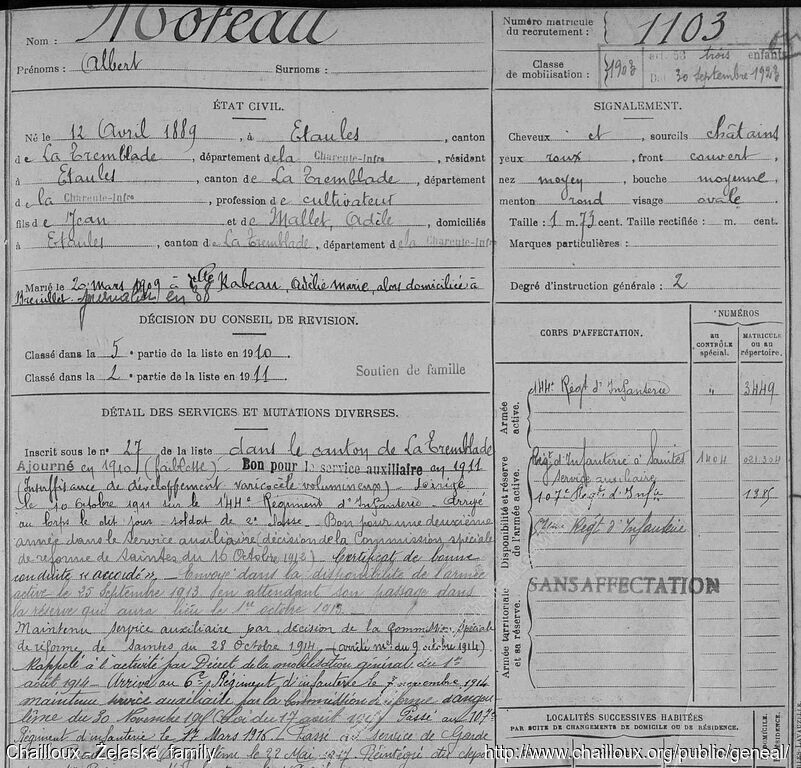 Nom : Moreau
Prénoms : Albert Surnoms :
Numéro matricule du recrutement : 1103
Classe de mobilisation : 1903
art. 58 trois enfants
30 septembre 1923
ÉTAT CIVIL.
Né le 12 Avril 1889, à Etaules, canton
de La Tremblade, département de la Charente-Infre, résidant
à Etaules, canton de La Tremblade, département
de la Charente-Infre, profession de cultivateur
fils de Jean et de Mallet, Adèle, domiciliés
à Etaules, canton de La Tremblade, département de la Charente-Infre
Marié le 20 mars 1909 à Delle Rabeau, Adélie Marie, alors domiciliée à
Breuillet
SIGNALEMENT.
Cheveux et sourcils châtains
yeux roux, front couvert
nez moyen, bouche moyenne
menton rond visage ovale
Taille : 1 m. 73 cent. Taille rectifiée : m. cent.
Marques particulières :
Degré d'instruction générale : 2
DÉCISION DU CONSEIL DE REVISION.
Classé dans la 5e partie de la liste en 1910.
Classé dans la 2e partie de la liste en 1911.
Soutien de famille
DÉTAIL DES SERVICES ET MUTATIONS DIVERSES.
Inscrit sous le n° 27 de la liste dans le canton de La Tremblade
Ajourné en 1910 (faiblesse) Bon pour le service auxiliaire en 1911
(Insuffisance de développement varicocèle volumineux)
le 10 Octobre 1911 sur le 144e Régiment d'Infanterie. Arrivé
au Corps le dit jour soldat de 2e classe. Bon pour une deuxième
année dans le service auxiliaire (décision de la Commission spéciale
de réforme de Saintes du 16 Octobre 1912) Certificat de bonne
conduite « accordé ». Envoyé dans la disponibilité de l'armée
active le 25 Septembre 1913 (en attendant son passage dans
la réserve qui aura lieu le 1er octobre 1913.
Maintenu service auxiliaire par décision de la Commission spéciale
de réforme de Saintes du 28 Octobre 1914 (arrêté mel du 9 octobre 1914)
Rappelé à l'activité par Décret de la mobilisation général du 1er
août 1914. Arrivé au 6e Régiment d'infanterie le 7 septembre 1914
maintenu service auxiliaire par la Commission de réforme d'Angou
lême du 30 Novembre (Loi du 17 août Passé au 107e
Régiment d'infanterie le 1er Mars 1916 Passé au service de Garde
22 Mai 1917 Réintégré
CORPS D'AFFECTATION.
NUMÉROS
au CONTRÔLE spécial.
MATRICULE ou au répertoire.
Armée active.
144e Régt d'Infanterie " 3449
Disponibilité et réserve de l'armée active.
Régt d'Infanterie à Saintes 1404 021.304
service auxiliaire
107e Régt d'Infie
Régt d'Infanterie
Armée territoriale et sa réserve.
SANS AFFECTATION
LOCALITÉS SUCCESSIVES HABITÉES
PAR SUITE DE CHANGEMENTS DE DOMICILE OU DE RÉSIDENCE.
DOMICILE.
RÉSIDENCE.
Chailloux - Zelaska family
http://www.chailloux.org/public/geneal/